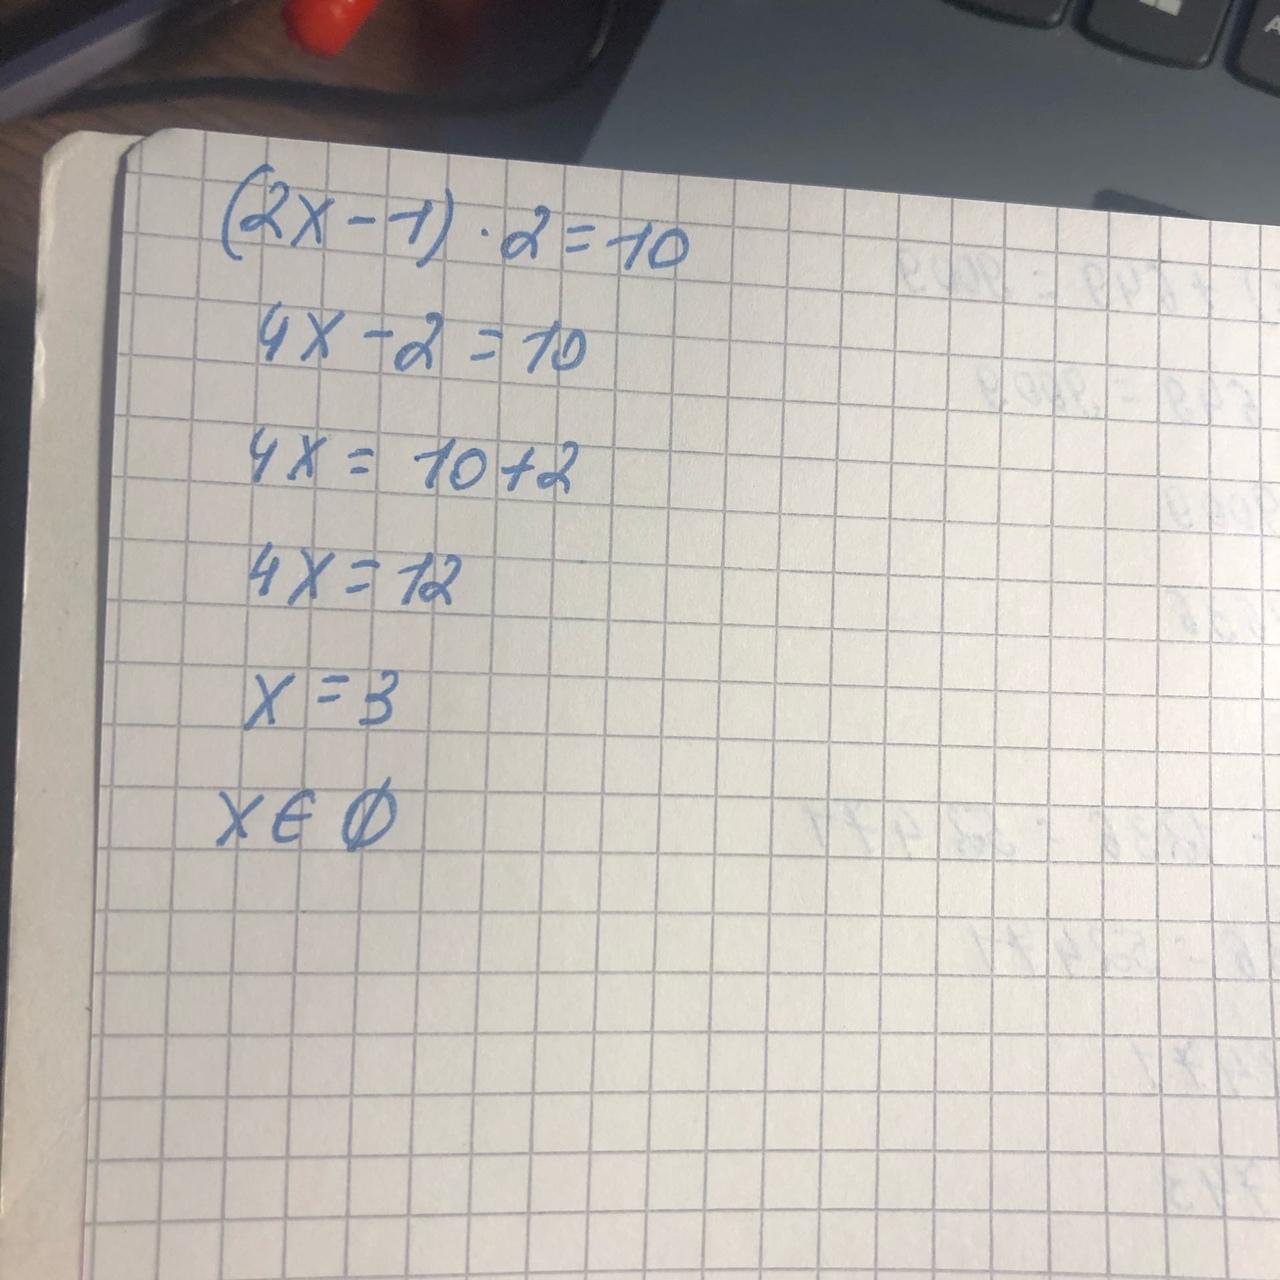 (2x-1)·2=10
4x-2=10
4x=10+2
4x=12
x=3
x∈∅